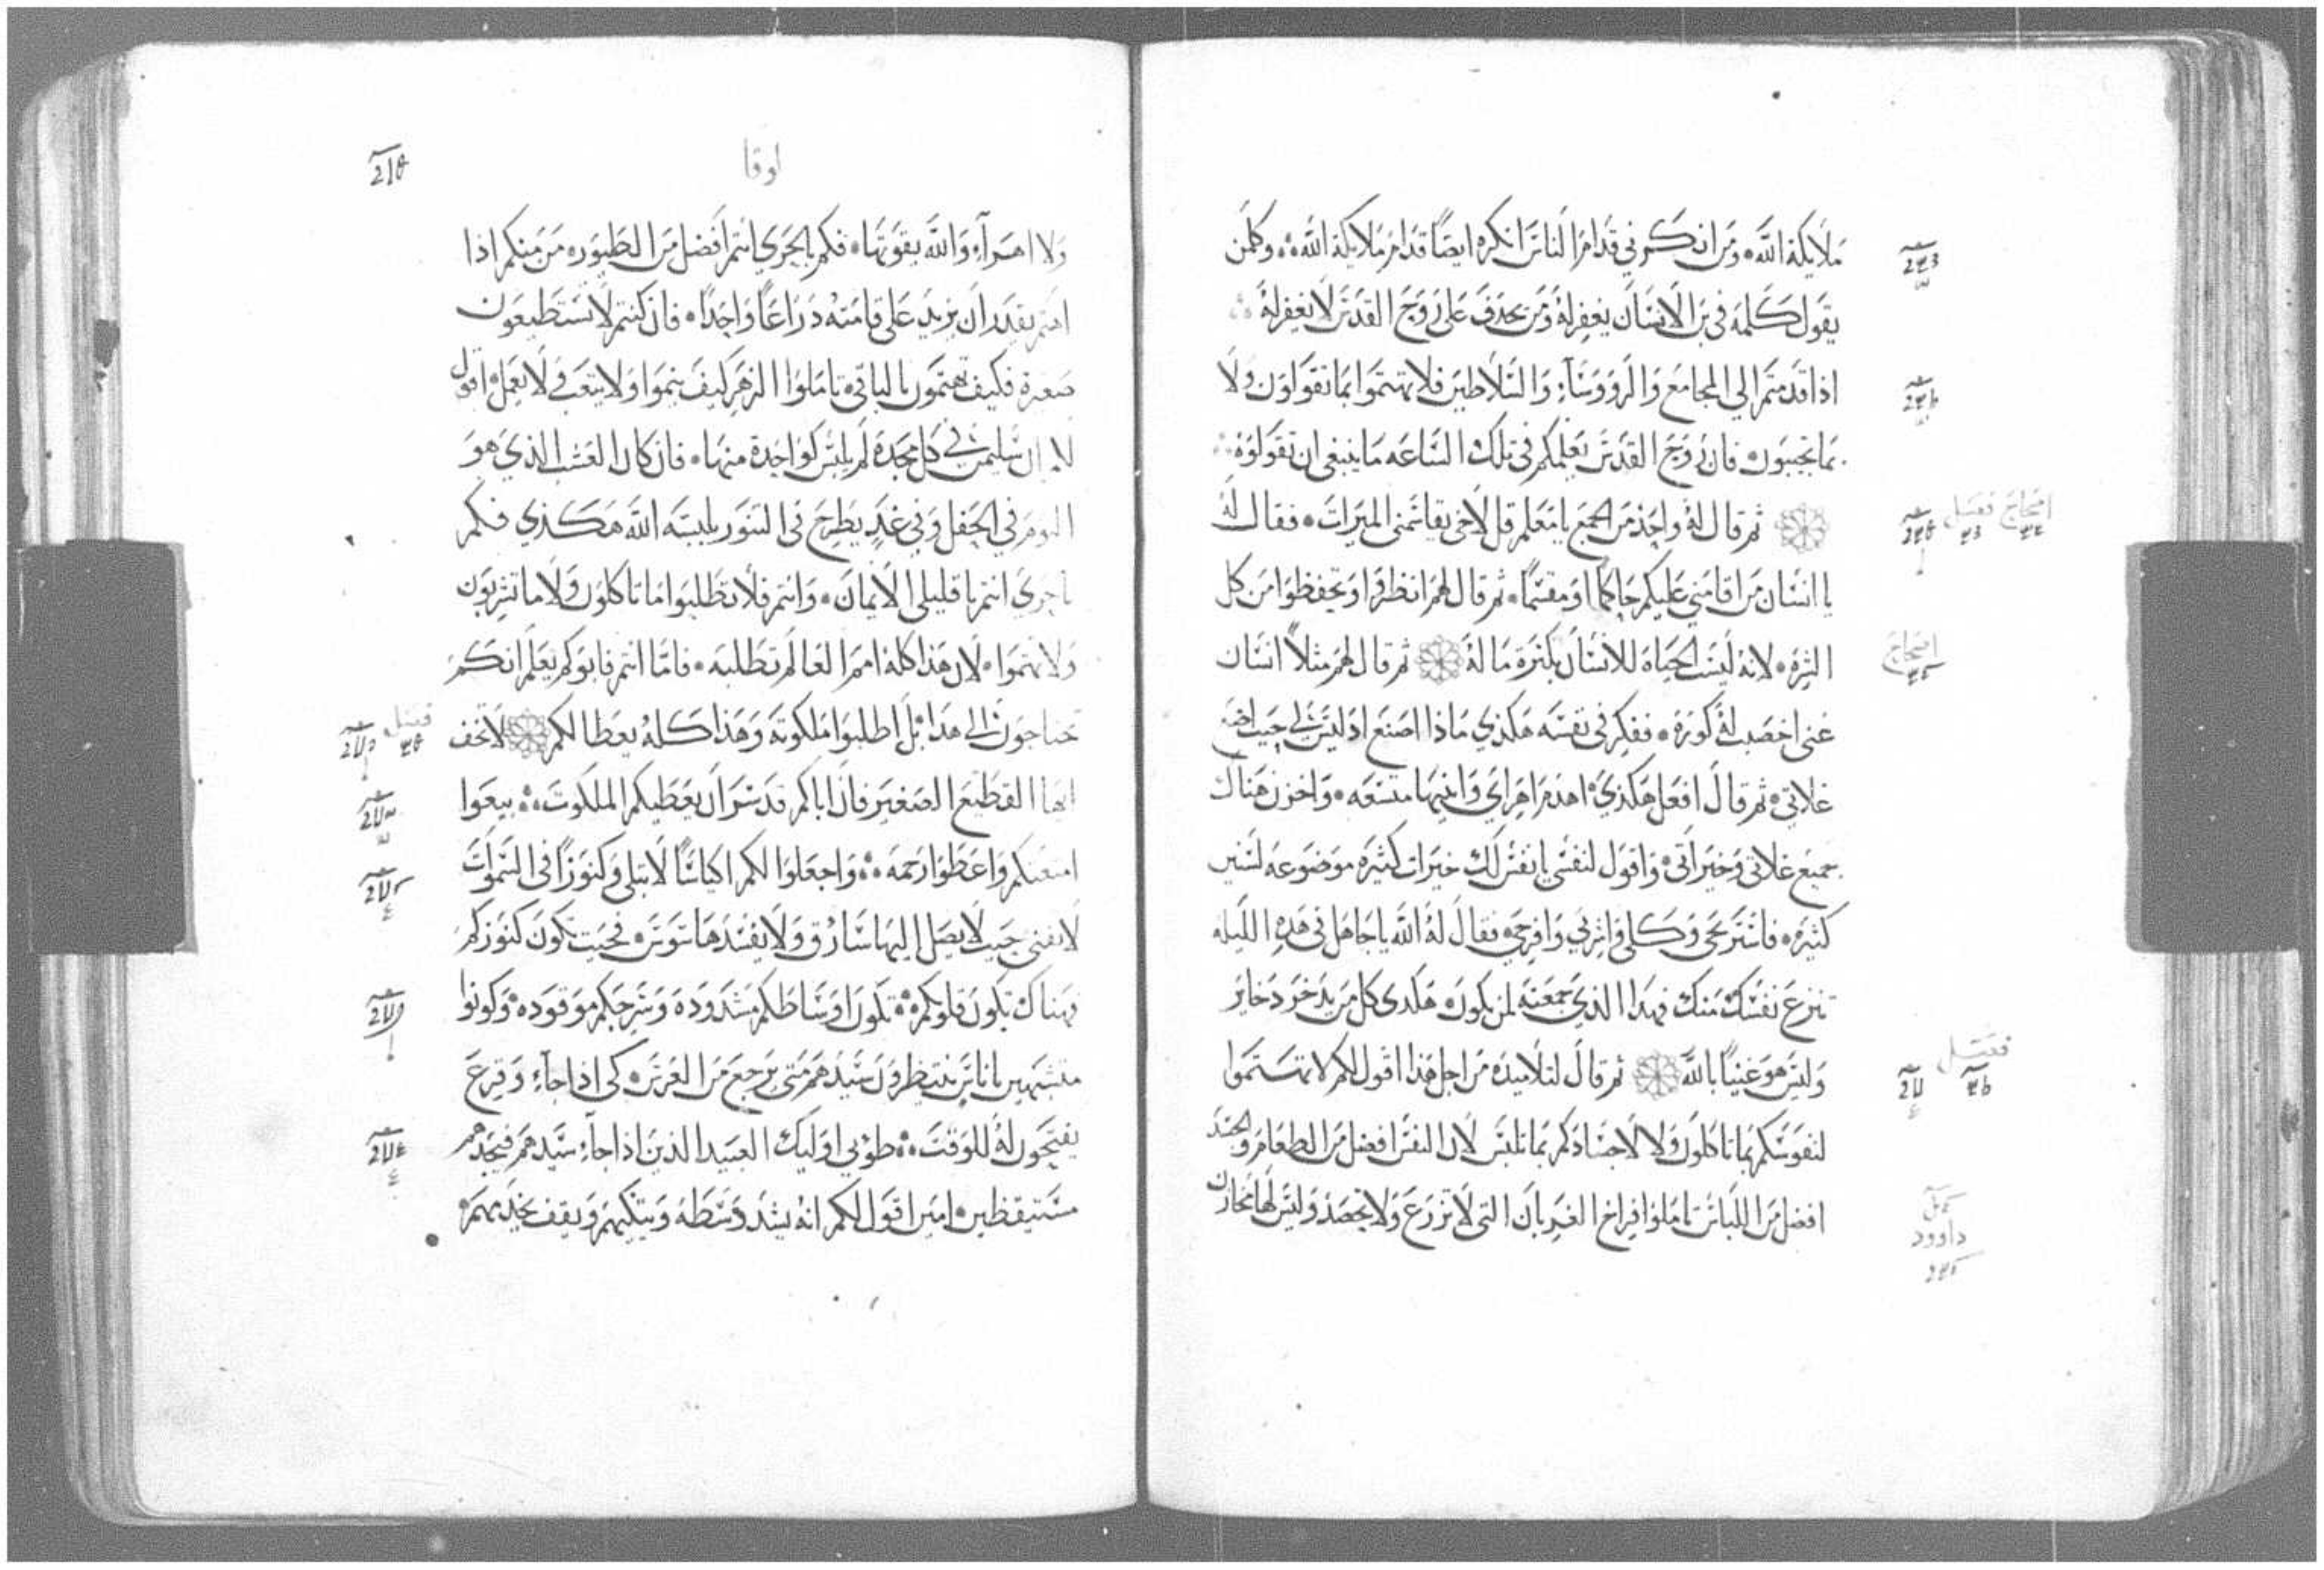 ملايكة الله ومن انكرني قدام الناس انكره ايضًا قدام ملايكة الله وكلمن
يقول كلمة في بن الانسان يغفر له ومن يجدف على روح القدس لا يغفر له
اذا قدمتم الي المجامع والروسآء والسلاطين فلا تهتموا بما تقولون ولا
بما تجيبون فان روح القدس يعلمكم في تلك الساعه ما ينبغي ان تقولوه
ثم قال له واحد من الجمع يا معلم قل لاخي يقاسمني الميرات فقال له
يا انسان من اقامني عليكم حاكمًا او مقسمًا ثم قال لهم انظروا وتحفظوا من كل
الشره لانه ليست الحياه للانسان بكثرة ماله ثم قال لهم مثلاً انسان
غني اخصبت له كورة ففكر في نفسه هكذي ماذا اصنع اذ ليس لي حيت اضع
غلاتي ثم قال افعل هكذي اهدم اهراي وابنيها متسعه واخزن هناك
جميع غلاتي وخيراتي واقول لنفسي يا نفس لك خيرات كثيره موضوعه لسنين
كثيره فاستريحي وكلي واشربي وافرحي فقال له الله يا جاهل في هذه الليله
تنزع نفسك منك فهدا الذي جمعته لمن يكون هكدى كل من يدخر دخاير
وليس هو غنيًا بالله ثم قال لتلاميذه من اجل هذا اقول لكم لا تهتموا
لنفوسكم بما تاكلون ولا لاجسادكم بما تلبس لان النفس افضل من الطعام والجسد
افضل من اللباس تاملوا فراخ الغربان التي لا تزرع ولا تحصد وليس لها مخازن
احجاج فصل
احجاج
فصل
داوود
لوقا
ولا اهرآء والله يقوتها فكم بالحري انتم افضل من الطيور من منكم اذا
اهتم يقدر ان يزيد على قامته دراعًا واحدًا فان كنتم لا تستطيعون
صغرة فكيف تهتمون بالباقي تاملوا الزهر كيف ينموا ولا يتعب ولا يعمل اقول
لكم ان سليمن في كل مجده لم يلبس كواحدة منها فان كان العشب الذي هو
اليوم في الحقل وفي غدٍ يطرح في التنور يلبسه الله هكذي فكم
بالحري انتم يا قليلي الايمان وانتم فلا تطلبوا ما تاكلون ولا ما تشربون
ولا تهتموا لان هذا كله امم العالم تطلبه فاما انتم فابوكم يعلم انكم
تحتاجون الى هدا بل اطلبوا ملكوته وهذا كله يعطا لكم لا تخف
فصل
ايها القطيع الصغير فان اباكم قد سر ان يعطيكم الملكوت بيعوا
امتعتكم واعطوا رحمه واجعلوا لكم اكياسًا لا تبلى وكنوزًا في السموات
لا تفنى حيت لا يصل اليها سارق ولا يفسدها سوس فحيت تكون كنوزكم
فهناك تكون قلوبكم تكون اوساطكم مشدوده وسرجكم موقوده وكونوا
متشبهين باناس ينتظرون سيدهم متى يرجع من العرس لكى اذا جآء وقرع
يفتحون له للوقت طوبي اوليك العبيد الذين اذا جآء سيدهم فيجدهم
مستيقظين امين اقول لكم انه يشد وسطه ويتكيهم ويقف يخدمهم